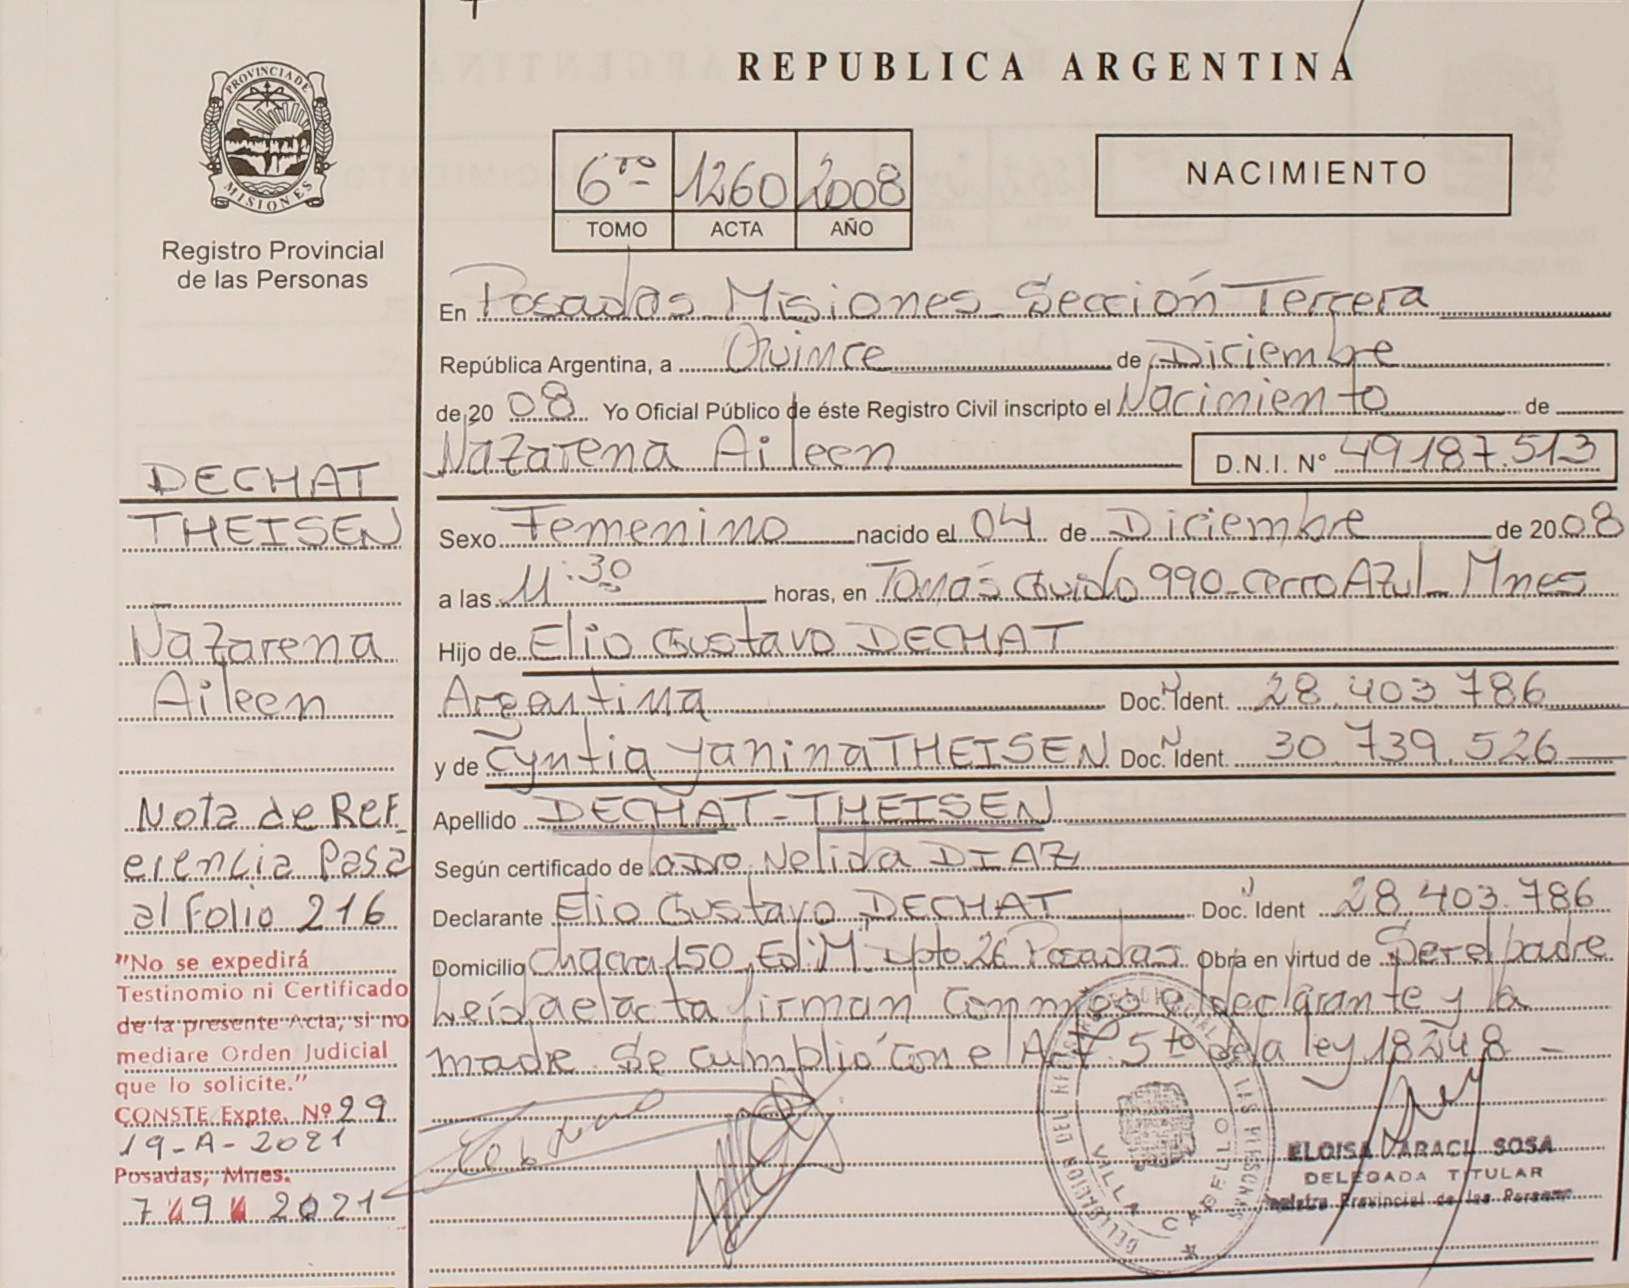 REPUBLICA ARGENTINA
PROVINCIA DE
MISIONES
Registro Provincial
de las Personas
6to 1260 2008
TOMO ACTA AÑO
NACIMIENTO
En Posadas - Misiones - Sección Tercera
República Argentina, a Quince de Diciembre
de 20 08 Yo Oficial Público de éste Registro Civil inscripto el Nacimiento de
Nazarena Aileen D.N.I. N° 49187.513
Sexo Femenino nacido el 04 de Diciembre de 20 08
a las 11:30 horas, en Tomás Guido 990 - Cerro Azul - Mnes
Hijo de Elio Gustavo DECHAT
Argentina Doc. Ident. 28.403.786
y de Cyntia Yanina THEISEN Doc. Ident. 30.739.526
Apellido DECHAT - THEISEN
Según certificado de Nelida DIAZ
Declarante Elio Gustavo DECHAT Doc. Ident 28.403.786
Domicilio Chacra 150 Ed: M. Dpto 26 Posadas Obra en virtud de Ser el padre
Leída el acta firman conmigo el declarante y la
madre. Se cumplió con el Art. 5to de la ley 18248 -
DECHAT
THEISEN
Nazarena
Aileen
Nota de Ref
erencia Pasa
al Folio 216
"No se expedirá
Testinomio ni Certificado
de la presente Acta, si no
mediare Orden Judicial
que lo solicite."
CONSTE Expte. Nº 29
19-A-2021
Posadas, Mnes.
7 9 2021
VILLA CABELLO
ELOISA ARACI SOSA
DELEGADA TITULAR
Registro Provincial de las Personas